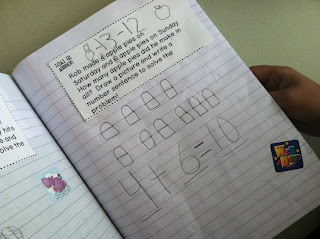 8-3-12
Rob made 4 apple pies on
Saturday and 6 apple pies on Sunday
How many apple pies did he make in
all? Draw a picture and write a
number sentence to solve the
problem!
4+6=10
hits
and
olve the